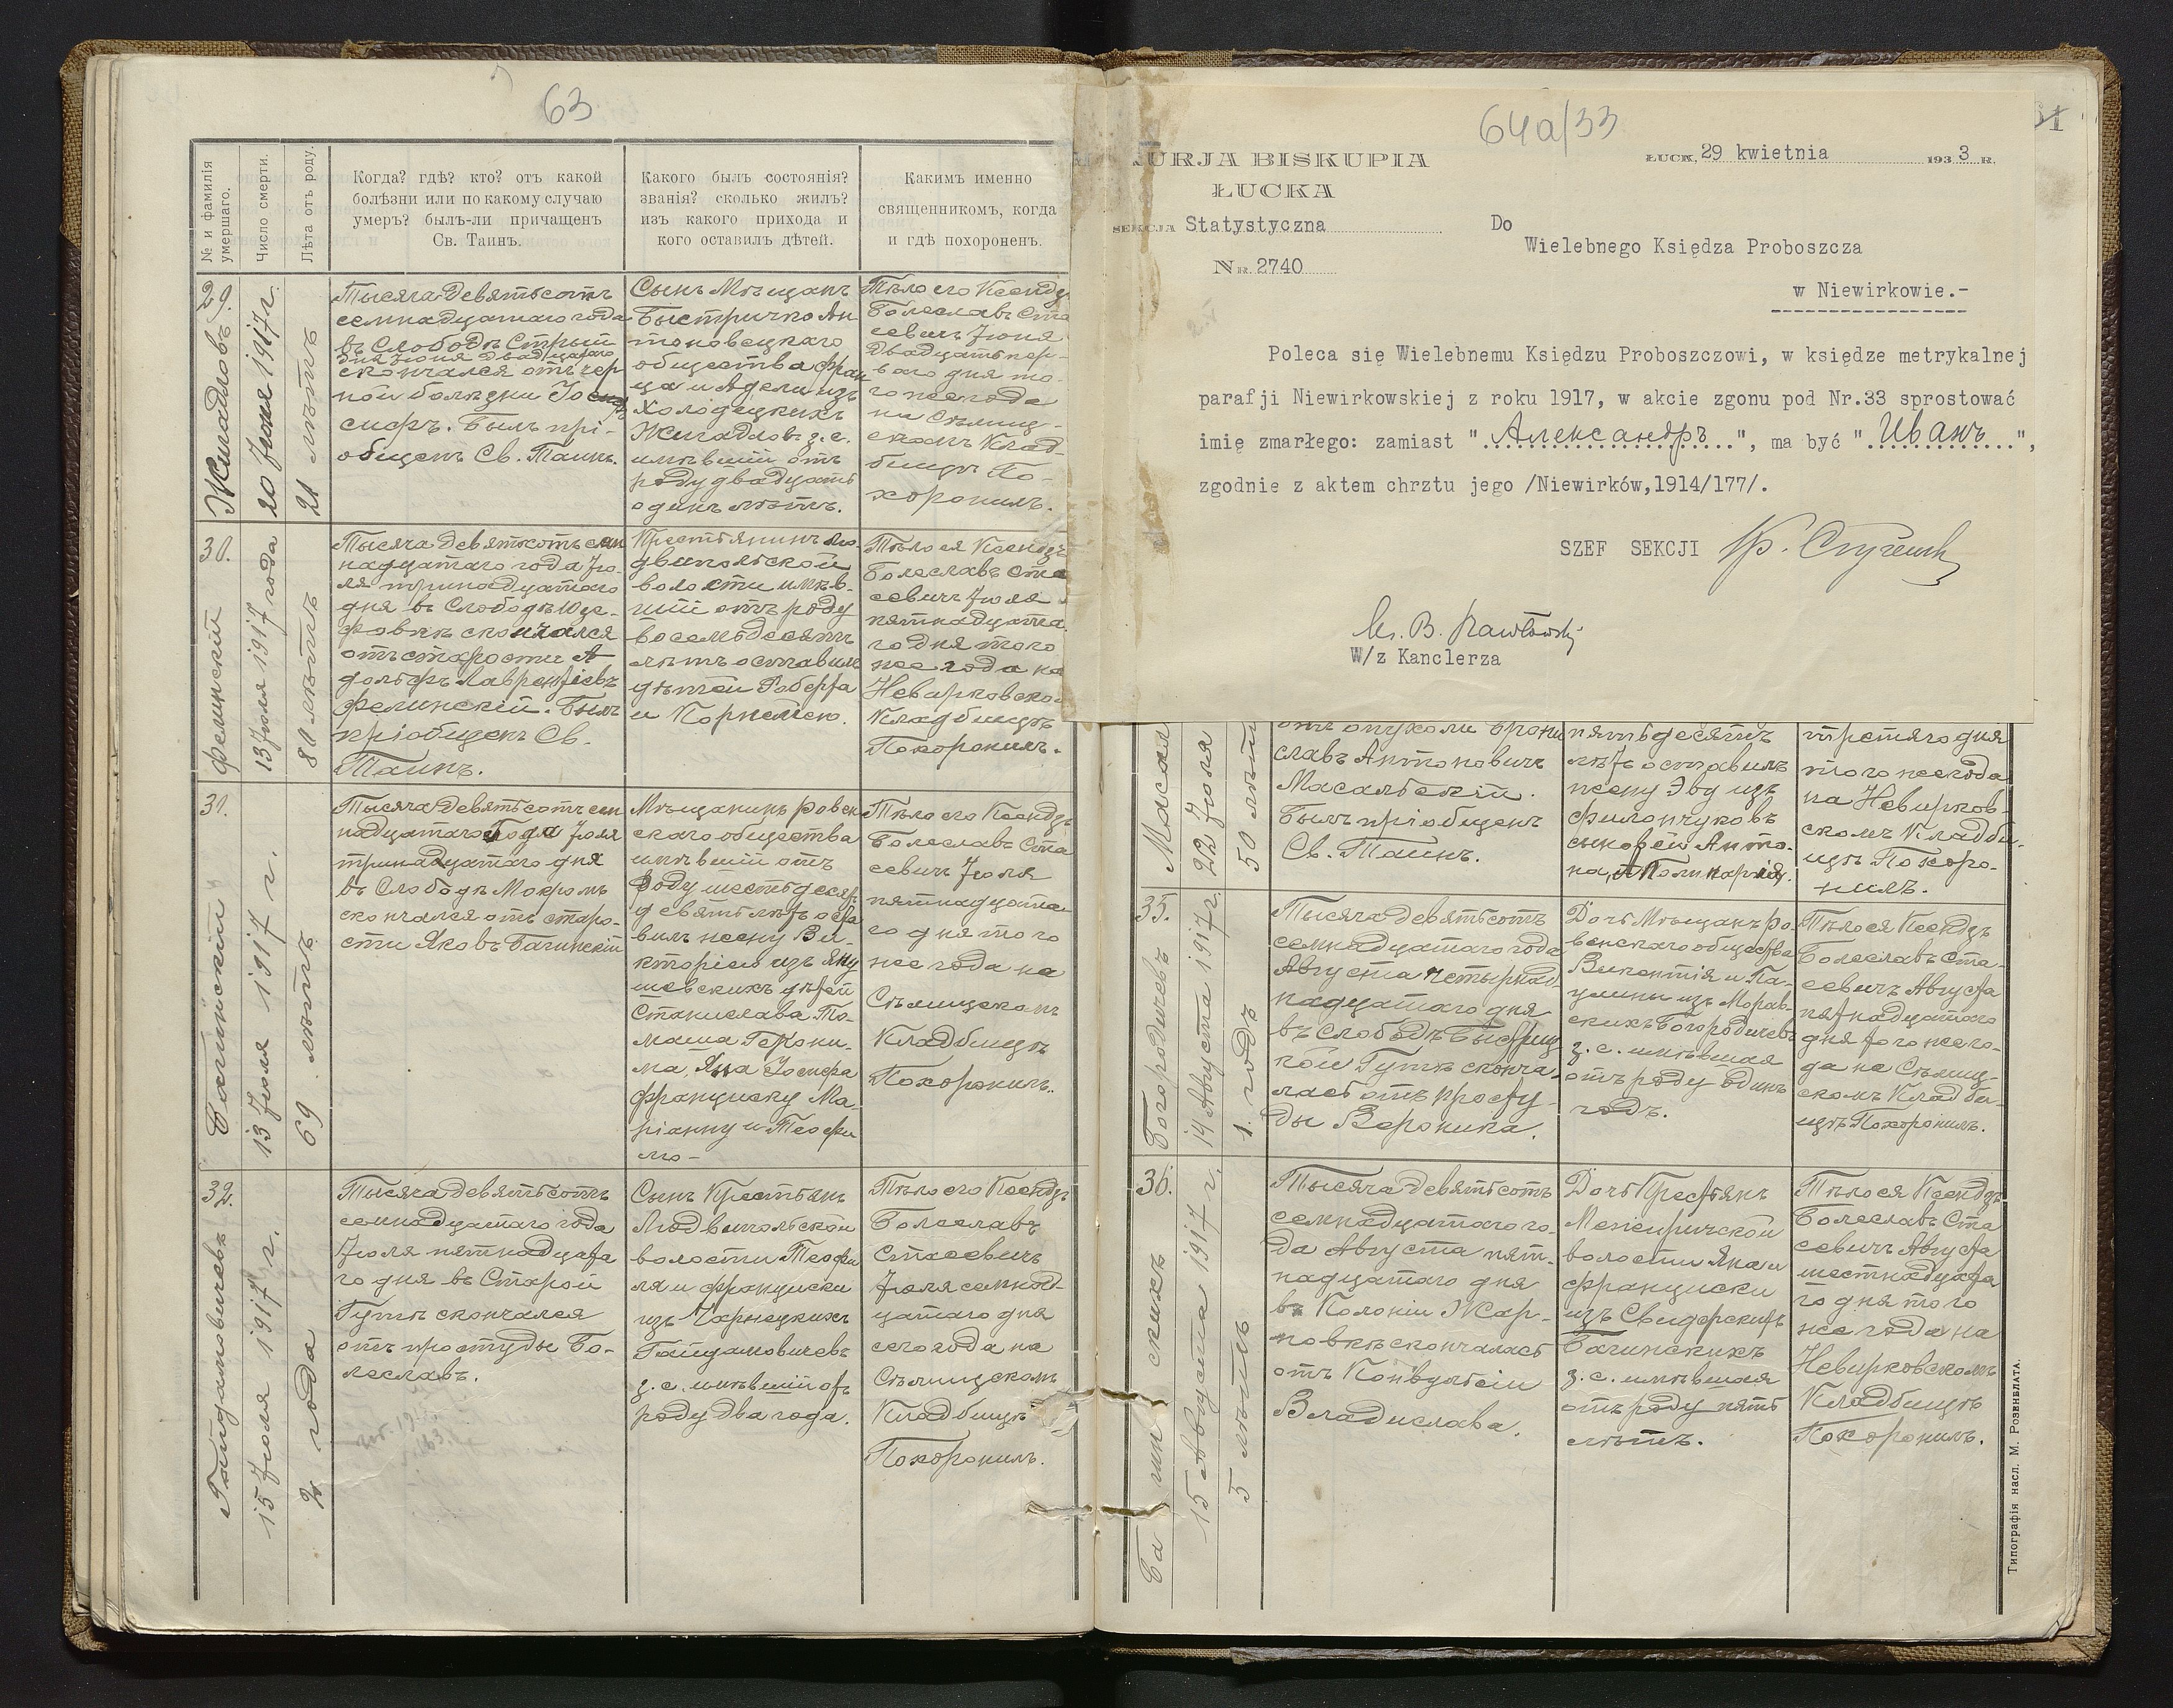 63
№ и фамилія умершаго.
Число смерти.
Лѣта отъ роду.
Когда? гдѣ? кто? отъ какой
болѣзни или по какому случаю
умеръ? былъ-ли причащенъ
Св. Таинъ.
Какого былъ состоянія?
званія? сколько жилъ?
изъ какого прихода и
кого оставилъ дѣтей.
Какимъ именно
священникомъ, когда
и гдѣ похороненъ.
29.
Жигадловъ
20 Іюня 1917 г.
21 лѣтъ
Тысяча девятьсотъ
семнадцатаго года
въ Слободѣ Стрый
дня Іюня двадцатаго
скончался отъ
ной болѣзни Іо
сифъ. Былъ прі-
общенъ Св. Таинъ.
Сынъ Мѣщанъ
Быстричко Ан
тоновецкаго
общества Фран
ца и Адели изъ
Холодецкихъ
Жигадловъ з. с.
имѣвшій отъ
роду двадцать
одинъ лѣтъ.
Тѣло его Ксендз
Болеславъ Ста
севичъ Іюня
двадцать пер-
ваго дня то-
го же года
на Сѣлищ-
скомъ Клад-
бищѣ По-
хоронилъ.
30.
Фелинскій
13 Іюля 1917 года
80 лѣтъ
Тысяча девятьсотъ сем
надцатаго года Ію-
ля тринадцатаго
дня въ Слободѣ Юзе-
фовкѣ скончался
отъ старости А
дольфъ Лаврентіевъ
Фелинскій. Былъ
пріобщенъ Св.
Таинъ.
Крестьянинъ Лю
двипольской
волости имѣв-
шій отъ роду
восемьдесятъ
лѣтъ оставилъ
дѣтей Роберта
и Корнелію.
Тѣло ея Ксендзъ
Болеславъ Ста
севичъ Іюля
пятнадцата
го дня того
же года на
Невирковско
Кладбищѣ
Похоронилъ.
31.
Багинскій
13 Іюля 1917 г.
69 лѣтъ
Тысяча девятьсотъ сем
надцатаго Года Іюля
тринадцатаго дня
въ Слободѣ Мокромъ
скончался отъ старо-
сти Яковъ Багинскій
Мѣщанинъ Ровен
скаго общества
имѣвшій отъ
роду шестьдесят
девять лѣтъ оста
вилъ жену Ви-
кторію изъ Яну
шевскихъ дѣтей
Станислава То-
маша Герони-
ма, Яна Іосифа
Франциску Ма-
ріанну и Теофи
лю-
Тѣло его Ксендзъ
Болеславъ Ста
севичъ Іюля
пятнадцата-
го дня того
же года на
Сѣлищскомъ
Кладбищѣ
Похоронилъ.
32.
Гайдамовичевъ
15 Іюля 1917 г.
2 года
Тысяча девятьсотъ
семнадцатаго года
Іюля пятнадцата
го дня въ Старой
Гутѣ скончался
отъ простуды Бо-
леславъ.
Сынъ Крестьянъ
Людвипольской
волости Теофи
ля и Франциски
изъ Чарнецкихъ
Гайдамовичевъ
з. с. имѣвшій отъ
роду два года.
Тѣло его Ксендзъ
Болеславъ
Стасевичъ
Іюля семнад-
цатаго дня
сего года на
Сѣлищскомъ
Кладбищѣ
Похоронилъ.
64a/33
URJA BISKUPIA
ŁUCKA
ŁUCK, 29 kwietnia 1933 R.
SEKCJA Statystyczna
Do
Wielebnego Księdza Proboszcza
NR. 2740
w Niewirkowie.-
Poleca się Wielebnemu Księdzu Proboszczowi, w księdze metrykalnej
parafji Niewirkowskiej z roku 1917, w akcie zgonu pod Nr.33 sprostować
imię zmarłego: zamiast "Александръ", ma być "Иванъ",
zgodnie z aktem chrztu jego /Niewirków,1914/177/.
SZEF SEKCJI
W/z Kanclerza
22 Іюля
50 лѣтъ
отъ опухоли Брони
славъ Антоновичъ
Масальскій.
Былъ пріобщенъ
Св. Таинъ.
пятьдесятъ
лѣтъ оставилъ
жену Эву изъ
Филончуковъ
сыновей Анто-
на,
третяго дня
того же года
на Невирков-
скомъ Кладби-
щѣ Похоро-
нилъ.
35.
Богородичевъ
14 Августа 1917 г.
1. годъ
Тысяча девятьсотъ
семнадцатаго года
Августа четырнад
надцатаго дня
въ Слободѣ Быстриц
кой Гутѣ сконча-
лась отъ просту-
ды Вероника.
Дочь Мѣщанъ Ро-
венскаго общества
Викентія и Па-
улины изъ Морав-
скихъ Богородичевъ
з. с. имѣвшая
отъ роду одинъ
годъ.
Тѣло ея Ксендзъ
Болеславъ Ста-
севичъ Августа
пятнадцатаго
дня того же го-
да на Сѣлищ-
скомъ Кладби-
щѣ Похоронилъ.
36.
Багинскихъ
15 Августа 1917 г.
5 лѣтъ
Тысяча девятьсотъ
семнадцатаго го-
да Августа пят-
надцатаго дня
въ Колоніи Жар-
новкѣ скончалась
отъ Конвульсіи
Владислава.
Дочь Крестьянъ
Межиричской
волости Яна и
Франциски
изъ Свидерскихъ
Багинскихъ
з. с. имѣвшая
отъ роду пять
лѣтъ.
Тѣло ея Ксендзъ
Болеславъ Ста
севичъ Августа
шестнадцата
го дня того
же года на
Невирковскомъ
Кладбищѣ
Похоронилъ.
Типографія насл. М. Розенблата.